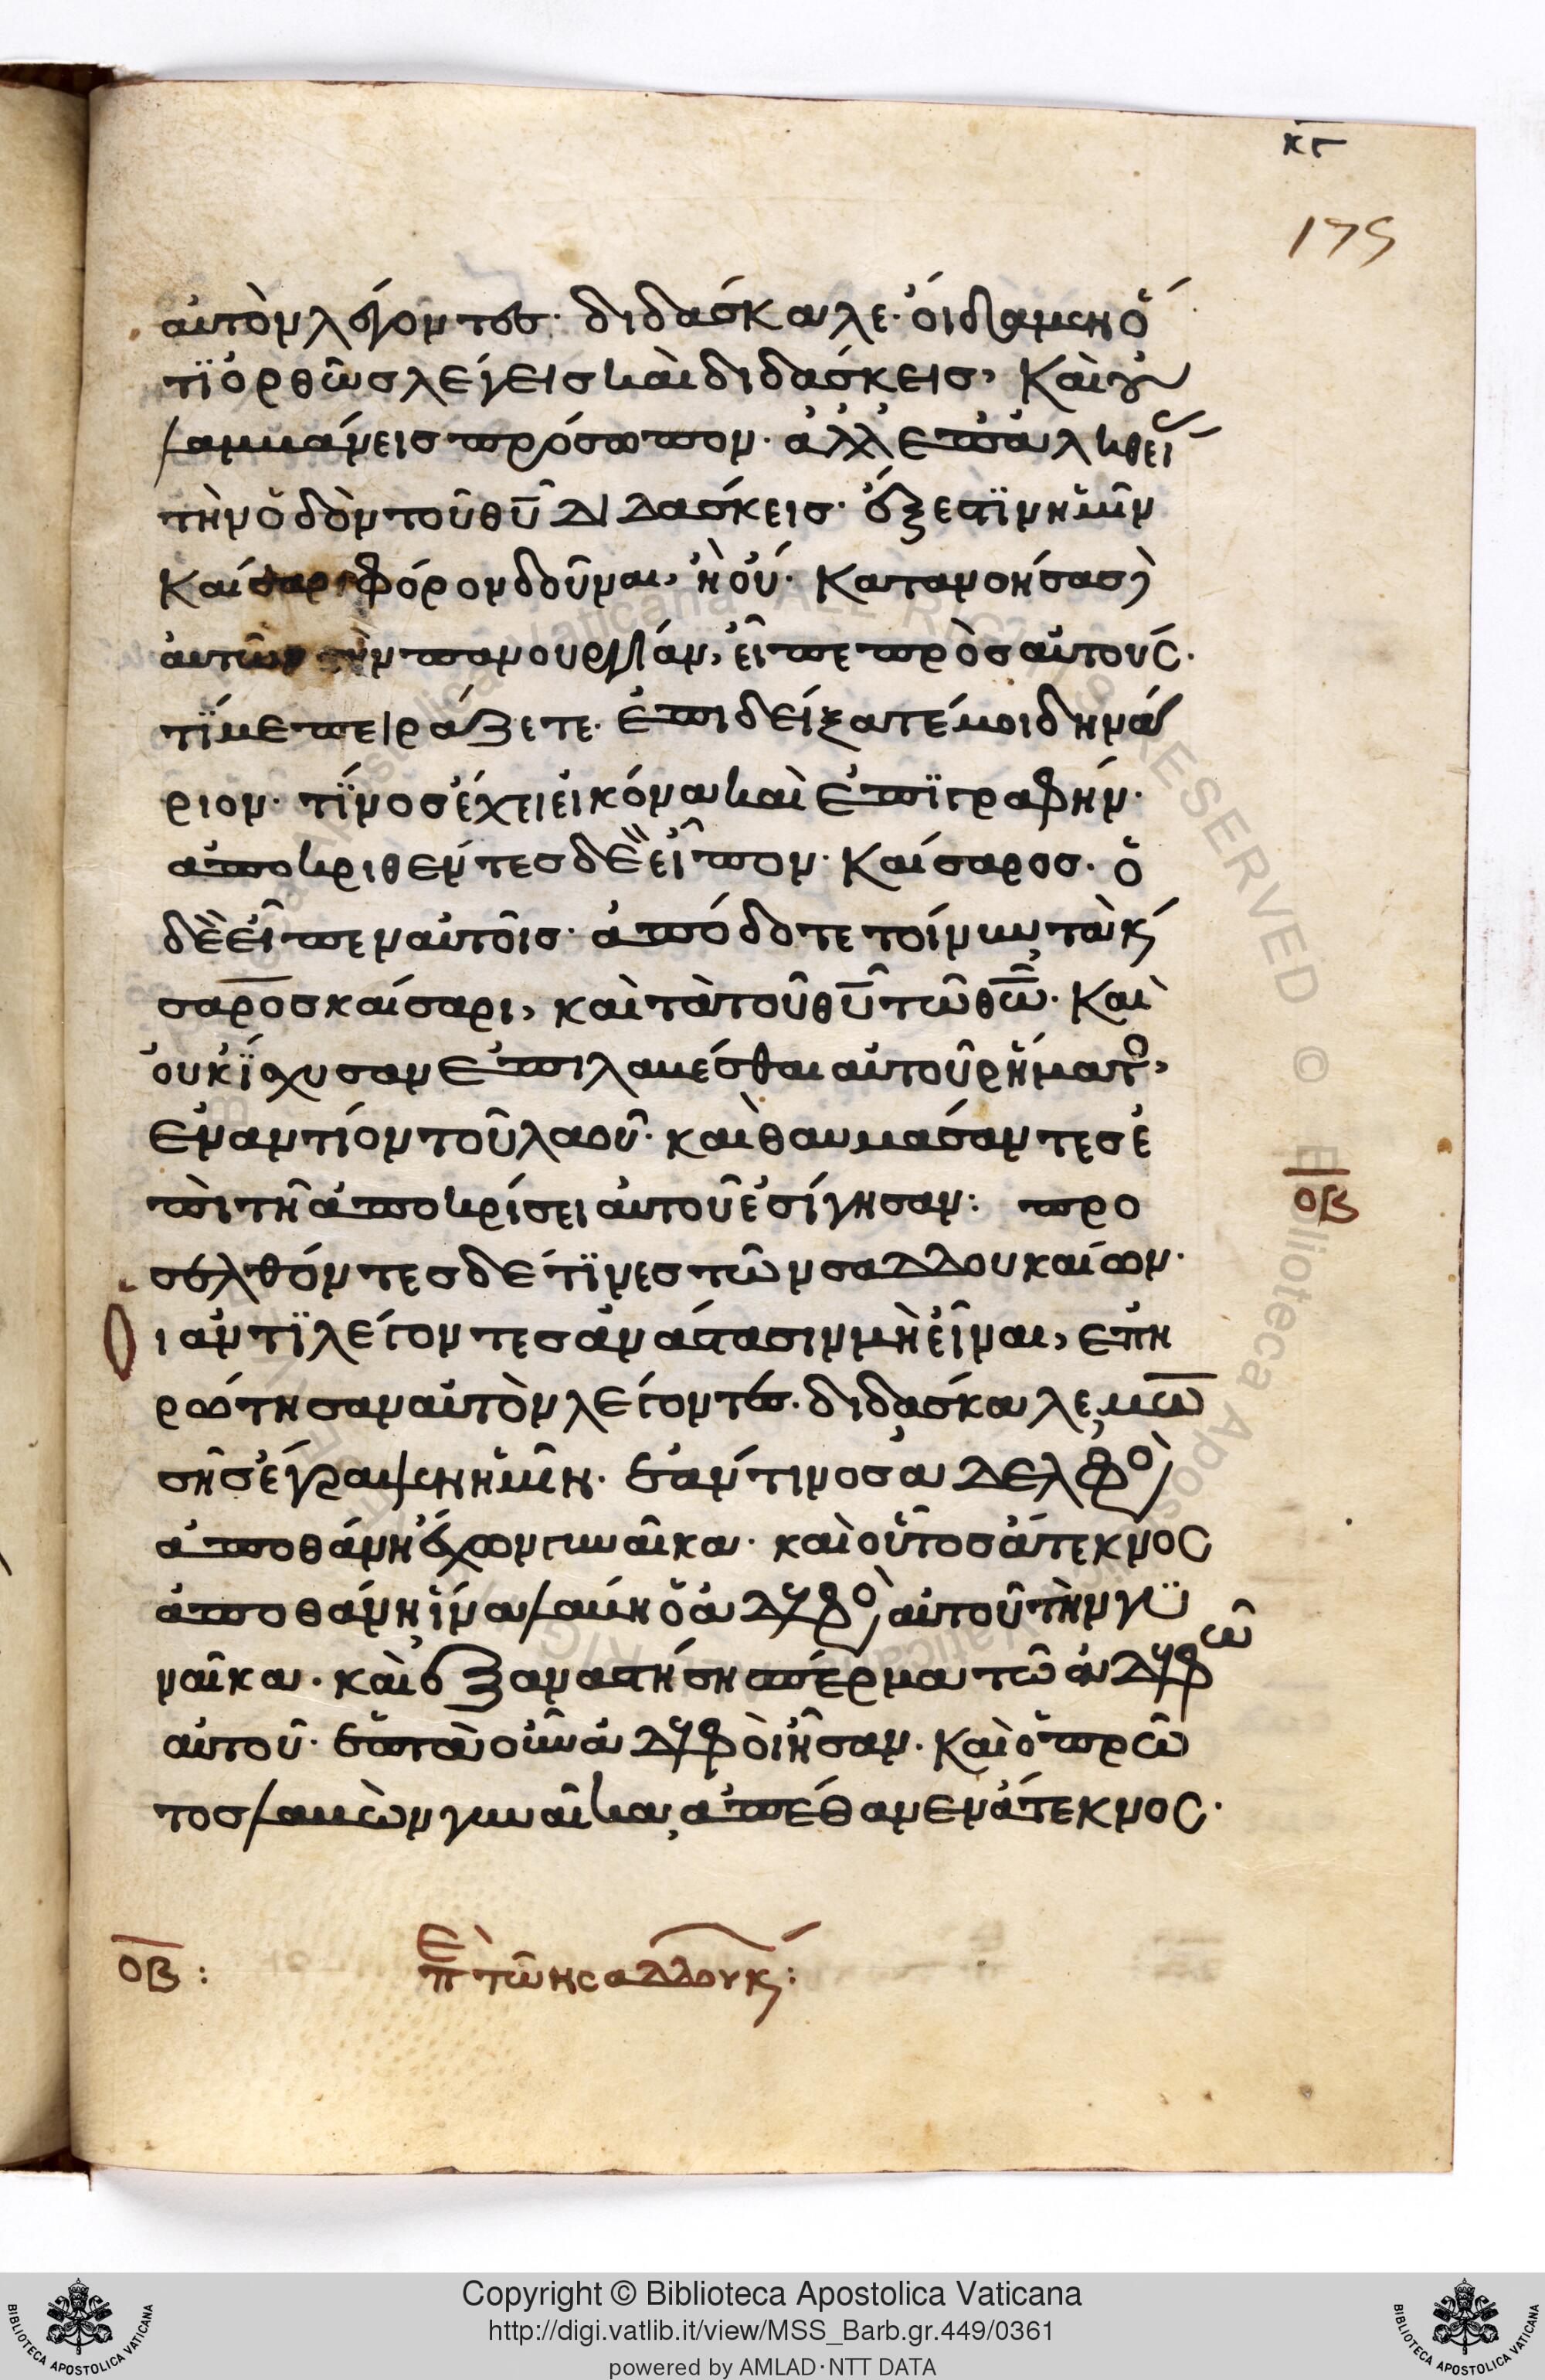 κγ
175
αὐτὸν λέγοντες· διδάσκαλε· οἴδαμεν ὅ
τϊ ὀρθῶς λέγεις καὶ διδάσκεις, καὶ οὐ
λαμβάνεις πρόσωπον· ἀλλ' ἐπ' ἀληθεί
τὴν ὁδὸν τοῦ θῦ διδάσκεις· ἔξεστϊν ἡμῖν
καίσαρι φόρον δοῦναι, ἢ οὔ· κατανοήσας δὲ
αὐτῶν τὴν πανουργίαν, εἶπε πρὸς αὐτούς·
τί με πειράζετε· ἐπιδείξατέ μοι δηνά
ριον· τίνος ἔχει εἰκόνα καὶ ἐπϊγραφήν·
ἀποκριθέντες δὲ εἶπον· καίσαρος· ὁ
δὲ εἶπεν αὐτοῖς· ἀπόδοτε τοίνυν τὰ καί
σαρος καίσαρι, καὶ τὰ τοῦ θῦ τῶ θῶ· καὶ
οὐκ ἴσχυσαν ἐπιλαβέσθαι αὐτοῦ ῥήματος,
ἐναντίον τοῦ λαοῦ· καὶ θαυμάσαντες ἐ
πὶ τῆ ἀποκρίσει αὐτοῦ ἐσίγησαν: προ
σελθόντες δέ τϊνες τῶν σαδδουκαίων·
οι ἀντϊλέγοντες ἀνάστασιν μὴ εἶναι, ἐπη
ρώτησαν αὐτὸν λέγοντες· διδάσκαλε, μω
σῆς ἔγραψεν ἡμῖν· ἐάν τινος ἀδελφὸς
ἀποθάνη ἔχων γυναῖκα· καὶ οὗτος ἄτεκνος
ἀποθάνη ἵνα λάβη ὁ ἀδελφὸς αὐτοῦ τὴν γυ
ναῖκα· καὶ ἐξαναστήση σπέρμα τῶ ἀδελφῶ
αὐτοῦ· ἑπτὰ οὖν ἀδελφοὶ ἦσαν· καὶ ὁ πρῶ
τος λαβὼν γυναῖκα, ἀπέθανεν ἄτεκνος·
οβ
οβ: περὶ τῶν σαδδουκαί:
Copyright © Biblioteca Apostolica Vaticana
http://digi.vatlib.it/view/MSS_Barb.gr.449/0361
powered by AMLAD·NTT DATA